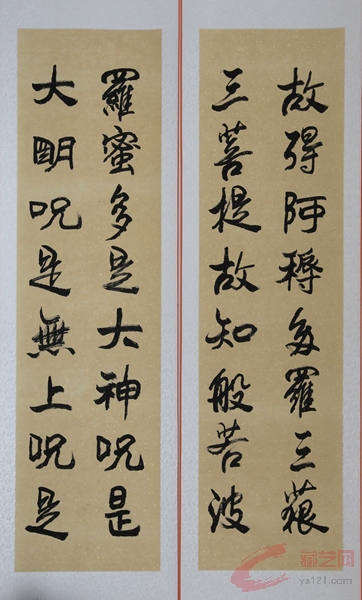 故得阿耨多羅三藐
三菩提故知般若波
羅蜜多是大神呪是
大明呪是無上呪是
艺网